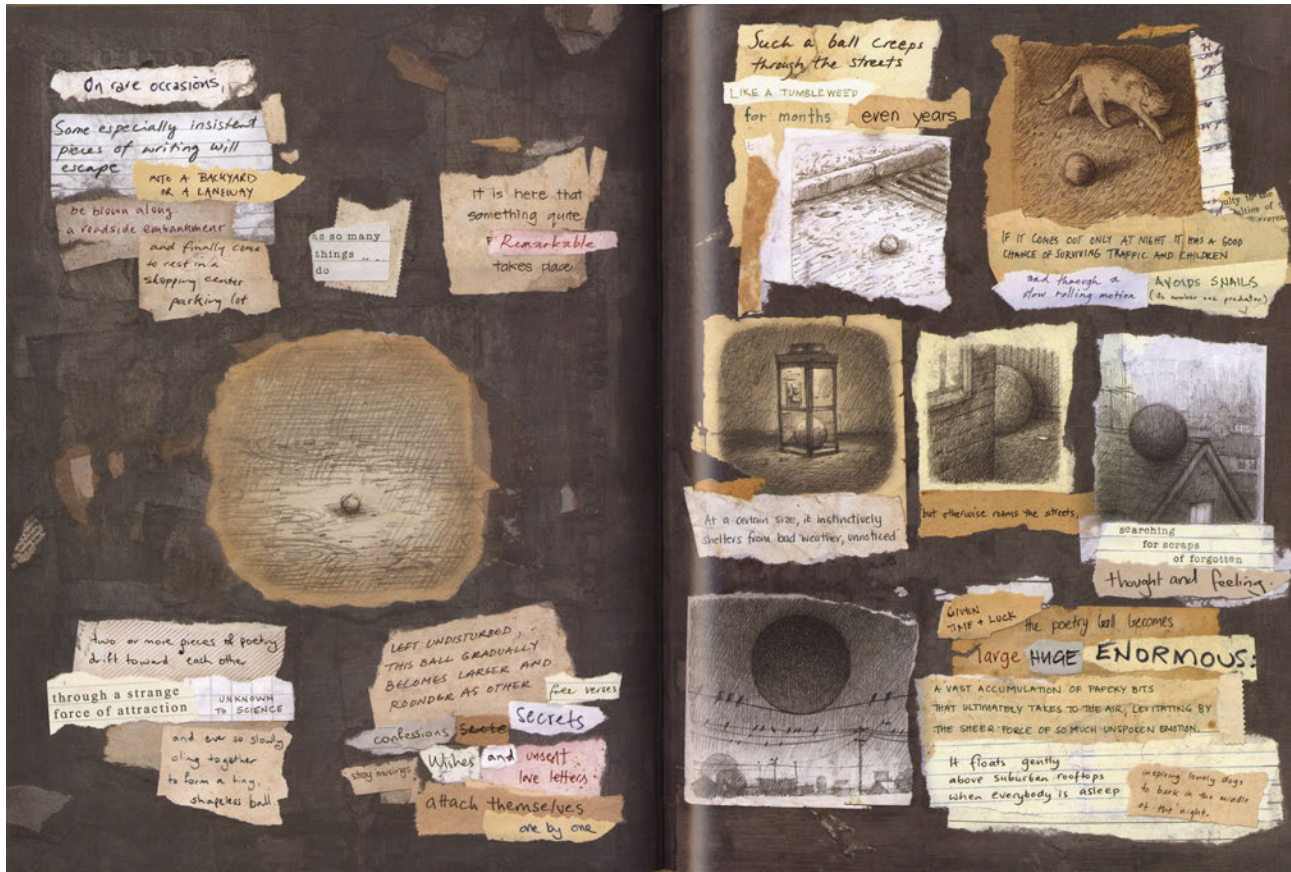 On rare occasions,
Some especially insistent
pieces of writing will
escape
INTO A BACKYARD
OR A LANEWAY
be blown along
a roadside embankment
and finally come
to rest in a
shopping center
parking lot
as so many
things
do
It is here that
something quite
Remarkable
takes place
two or more pieces of poetry
drift toward each other
through a strange
force of attraction
UNKNOWN
TO SCIENCE
and ever so slowly
cling together
to form a tiny,
shapeless ball
LEFT UNDISTURBED,
THIS BALL GRADUALLY
BECOMES LARGER AND
ROUNDER AS OTHER
free verses
confessions
secrets
Secrets
stray musings
Wishes and unsent
love letters
attach themselves
one by one
Such a ball creeps
through the streets
LIKE A TUMBLEWEED
for months even years
IF IT COMES OUT ONLY AT NIGHT IT HAS A GOOD
CHANCE OF SURVIVING TRAFFIC AND CHILDREN
and through a
slow rolling motion
AVOIDS SNAILS
(its number one predator)
At a certain size, it instinctively
shelters from bad weather, unnoticed
but otherwise roams the streets,
searching
for scraps
of forgotten
thought and feeling.
GIVEN
TIME + LUCK
the poetry ball becomes
large HUGE ENORMOUS:
A VAST ACCUMULATION OF PAPERY BITS
THAT ULTIMATELY TAKES TO THE AIR, LEVITATING BY
THE SHEER FORCE OF SO MUCH UNSPOKEN EMOTION.
It floats gently
above suburban rooftops
when everybody is asleep
inspiring lonely dogs
to bark in the middle
of the night.